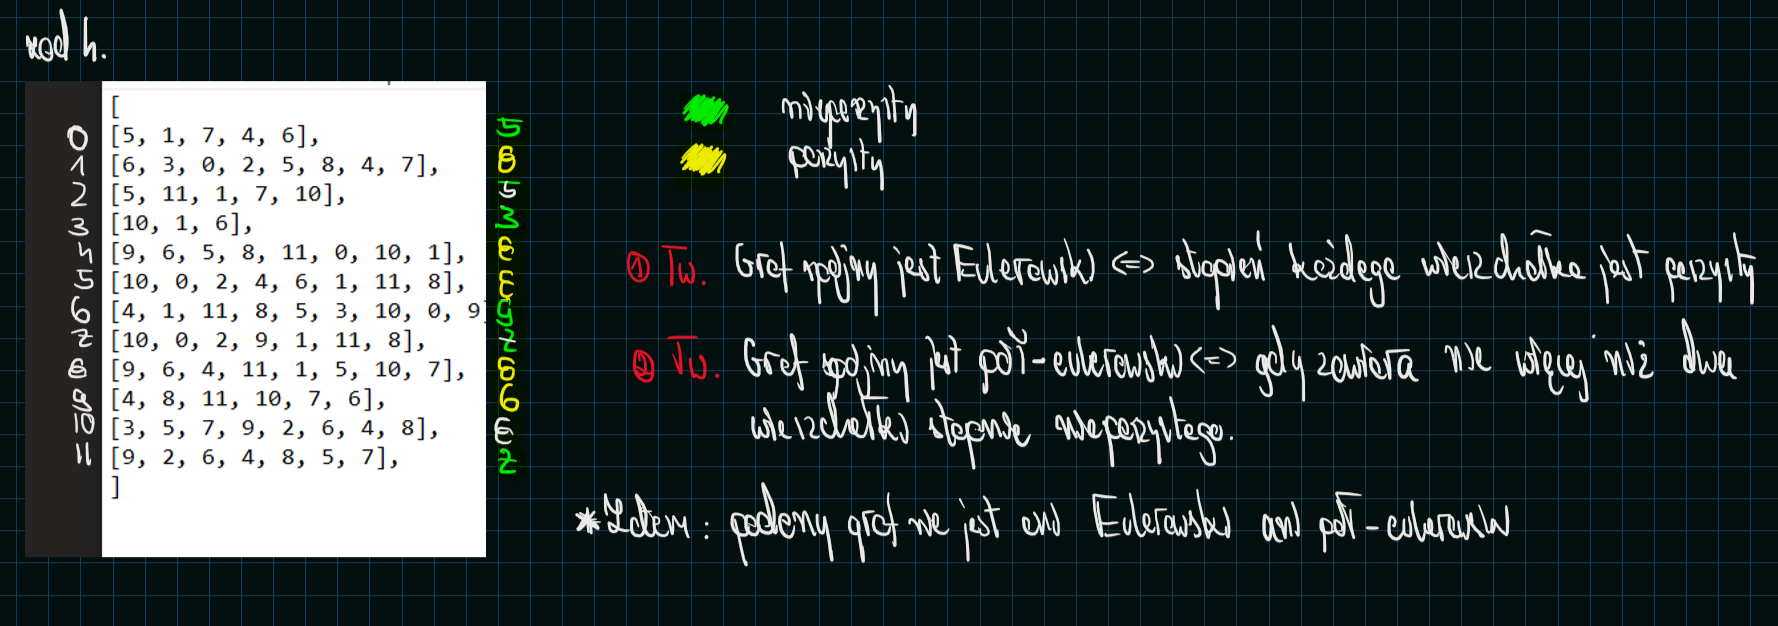 zad 4.
[
0 [5, 1, 7, 4, 6], 5
1 [6, 3, 0, 2, 5, 8, 4, 7], 8
2 [5, 11, 1, 7, 10], 5
3 [10, 1, 6], 3
5 [9, 6, 5, 8, 11, 0, 10, 1],
5 [10, 0, 2, 4, 6, 1, 11, 8],
6 [4, 1, 11, 8, 5, 3, 10, 0, 9]
7 [10, 0, 2, 9, 1, 11, 8], 7
8 [9, 6, 4, 11, 1, 5, 10, 7], 8
9 [4, 8, 11, 10, 7, 6], 6
10 [3, 5, 7, 9, 2, 6, 4, 8],
11 [9, 2, 6, 4, 8, 5, 7], 7
]
nieparzysty
parzysty
① Tw. Graf spójny jest Eulerowski <=> stopień każdego wierzchołka jest parzysty
② Tw. Graf spójny jest pół-eulerowski <=> gdy zawiera nie więcej niż dwa
wierzchołki stopnia nieparzystego.
* Zatem: podany graf nie jest ani Eulerowski ani pół-eulerowski